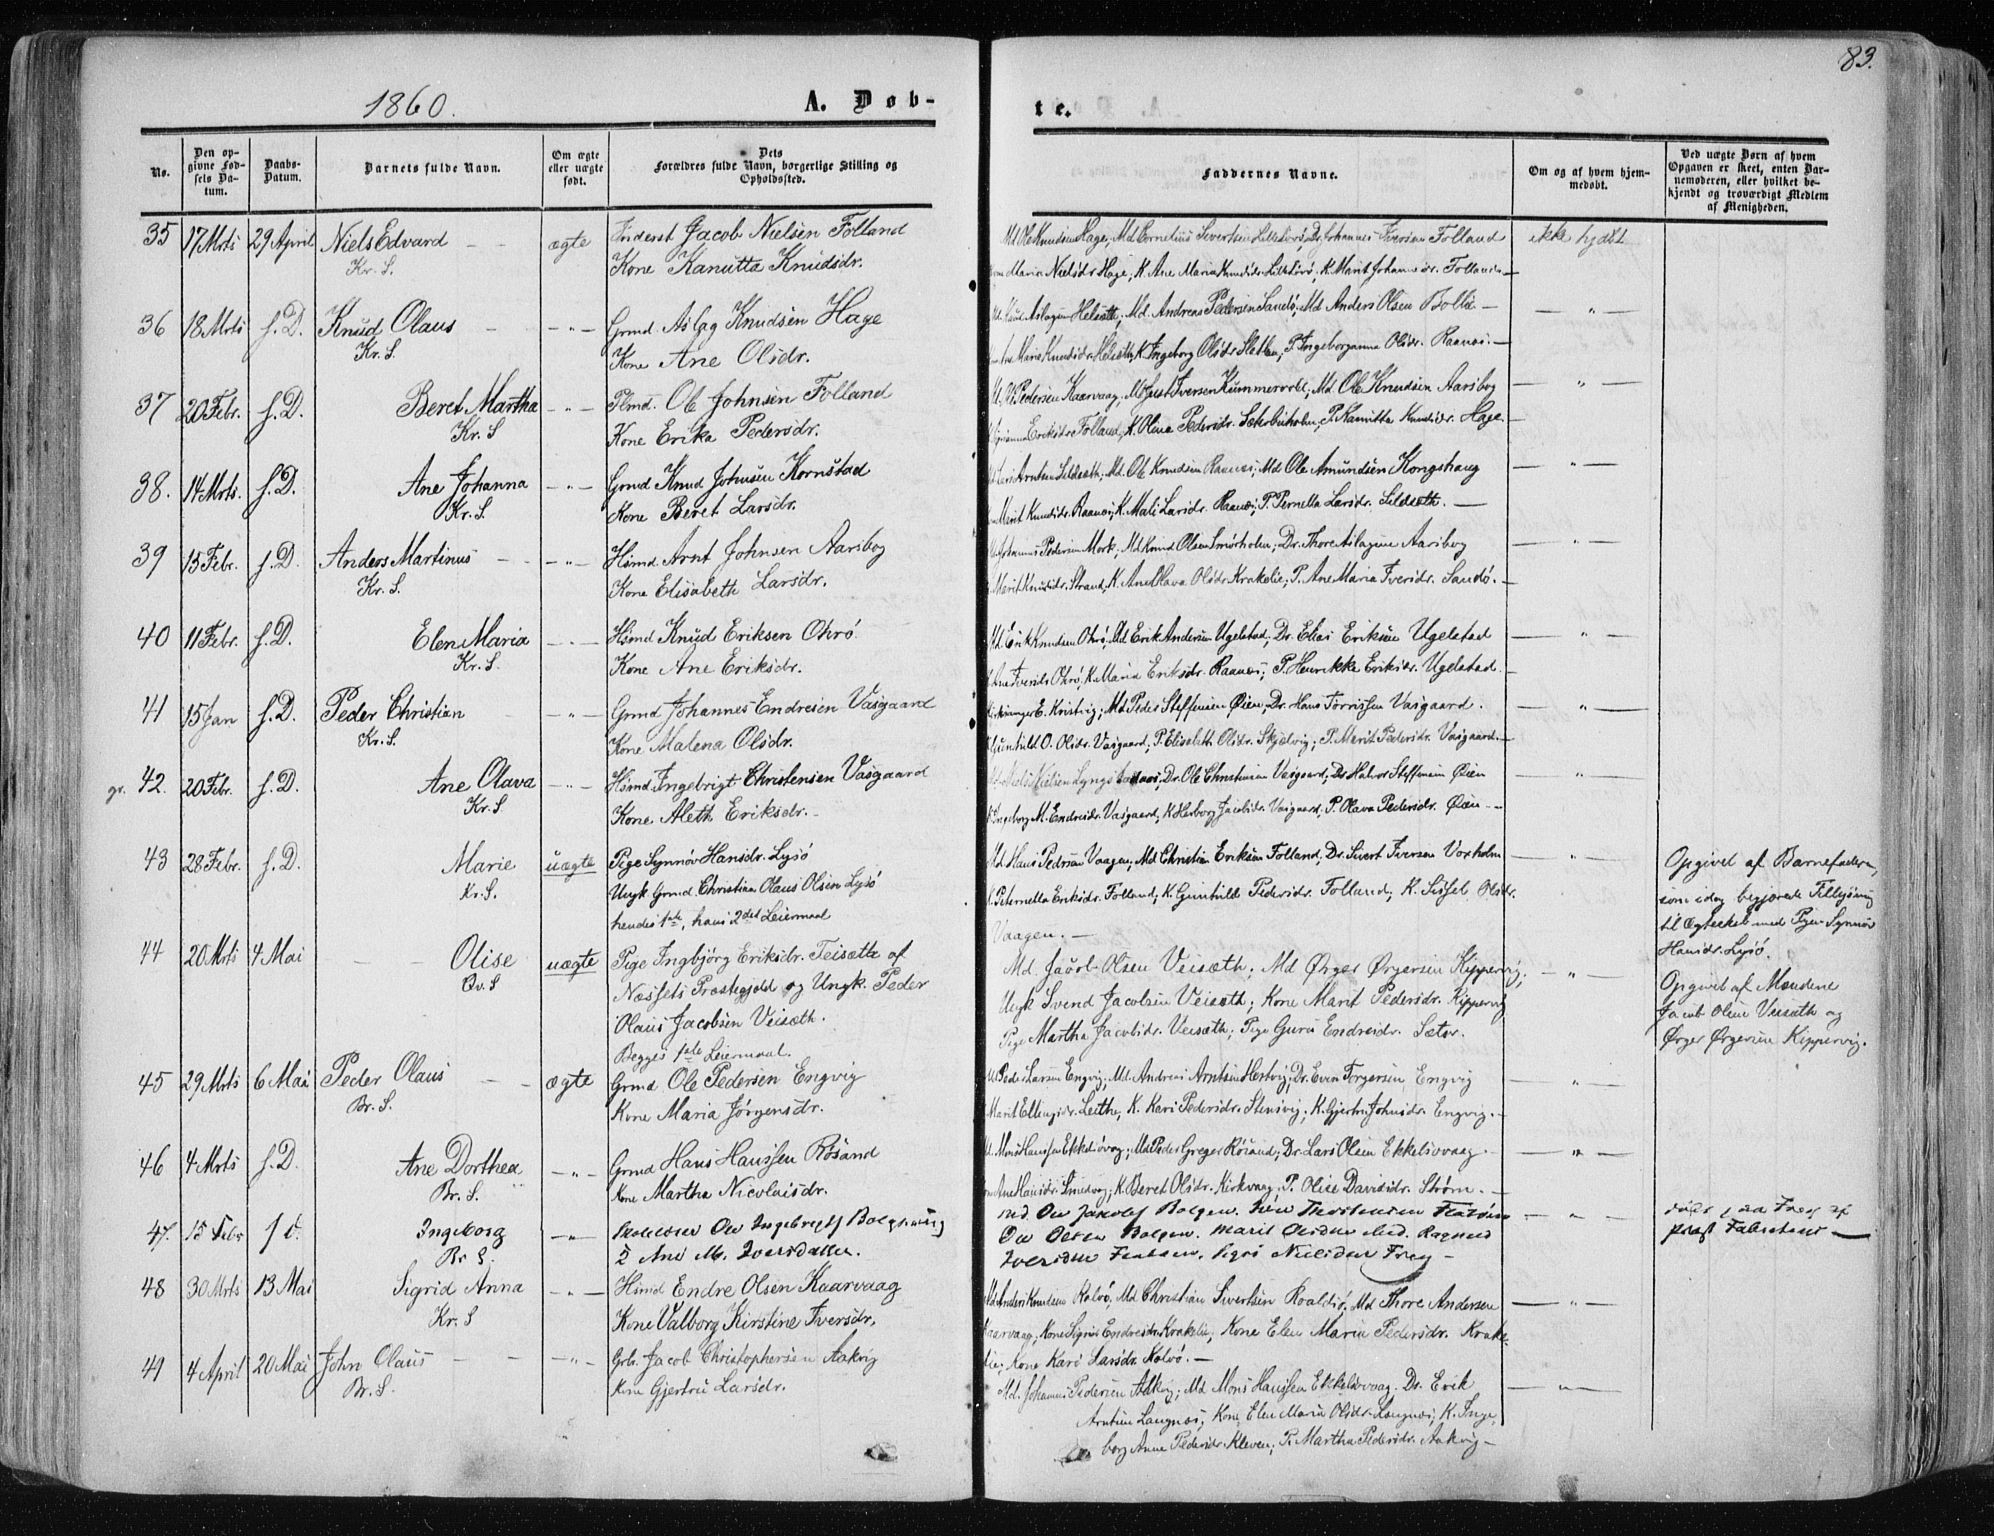 1860.
A. Døb-
te.
83.
No.
Den op-
givne Fød-
sels Da-
tum.
Daabs-
Datum.
Barnets fulde Navn.
Om ægte
eller uægte
født.
Dets
Forældres fulde Navn, borgerlige Stilling og
Opholdssted.
Faddernes Navne.
Om og af hvem hjem-
medøbt.
Ved uægte Børn af hvem
Opgaven er skeet, enten Bar-
nemoderen, eller hvilket be-
kjendt og troværdigt Medlem
af Menigheden.
35 17 Mrts 29 April Niels Edvard ægte Inderst Jacob Nielsen Folland
Kr. S. Kone Kanutta Knudsdr.
Md Ole Knudsen Hage, Md Cornelius Sivertsen Lillebrø, Dr. Johannes Iversen Folland ikke hjdbt
Maria Nielsdr Hage, K. Ane Maria Knudsdr. K. Marit Johansdr. Folland
36 18 Mrts s. D. Knud Olaus — " — Grmd. Aslag Knudsen Hage
Kr. S. Kone Ane Olsdr.
Aslagsen Helsæth, Md. Andreas Pedersen Sandø, Md Anders Olsen Bollie — " —
Marie Knudsdr. Helsæth, K. Ingeborg Olsdr. Sletten, P. Ingeborganna Olsdr. Raanæs. —
37 20 Febr. s. D. Beret Martha — " — Plmd. Ole Johnsen Folland
Kr. S Kone Erika Pedersdr.
Pedersen Kaarvaag, Md Just Iversen Kummervold, Md Ole Knudsen Aarsbog — " —
Eriksdr Folland, K. Olina Pedersdr. Sæterbuholm, P. Kanutta Knudsdr. Hage.
38. 14 Mrts. s. D. Ane Johanna — " — Grmd Knud Johnsen Kornstad
Kr. S. Kone Beret Larsdr.
Arntsen Sildsæth, Md. Ole Knudsen Raanæs, Md Ole Amundsen Kongshaug — " —
Marit Knudsdr. Raanæs, K. Mali Larsdr. Raanæs, P. Pernella Larsdr. Sildsæth. —
39 15 Febr. s. D. Anders Martinus — " — Hsmd. Arnt Johnsen Aarsbog
Kr. S. Kone Elisabeth Larsdr.
Johannes Pedersen Mork, Md Knud Olsen Smørholm, Dr. Thore Aslagsen Aarsbog — " —
Marit Knudsdr. Strand, K. Ane Olava Olsdr Krakelie, P. Ane Maria Iversdr. Sandø. —
40 11 Febr. s. D. Elen Maria — " — Hsmd Knud Eriksen Ohrø
Kr. S Kone Ane Eriksdr.
Md Erik Knudsen Ohrø, Md Erik Andersen Ugelstad, Dr. Elias Eriksen Ugelstad — " —
Ane Iversdr. Ohrø, K. Maria Eriksdr. Raanæs, P. Henrikke Eriksdr. Ugelstad.
41 15 Jan s. D. Peder Christian — " — Grmd Johannes Endresen Vasgaard
Kr. S. Kone Malena Olsdr.
Kirksanger E. Kristvig, Md Peder Steffensen Øien, Dr. Hans Torrissen Vasgaard. — " —
Gunhild O. Olsdr. Vasgaard, P. Elisabeth Olsdr. Skjølsvig, P. Marit Pedersdr. Vasgaard. —
42. 20 Febr. s. D. Ane Olava — " — Hsmd Ingebrigt Christensen Vasgaard
Kr. S Kone Aleth Eriksdr. —
Niels Nielsen Lyngstadnæs, Dr. Ole Christensen Vasgaard, Dr. Halvor Steffensen Øien — " —
Ingeborg M. Endresdr. Vasgaard, K Herborg Jacobsdr. Vasgaard, P. Olava Pedersdr. Øien —
43 28 Febr. s. D. Marie uægte Pige Synnøv Hansdr. Lysø
Kr. S. Ungk Grmd Christian Olaus Olsen Lysø
hendes 1ste, hans 2det Leiermaal
Md. Hans Pedersen Vaagen, Md Christian Eriksen Folland, Dr. Sivert Iversen Voxholm — " —
K. Peternella Eriksdr. Folland, K. Gunhild Pedersdr. Folland, K. Sissel Olsdr.
Vaagen. —
Opgivet af Barnefaderen,
som idag begjærede Tillysning
til Ægteskab med Pigen Synnøv
Hansdr. Lysø.
44 20 Mrts 4 Mai Olise uægte Pige Ingbjørg Eriksdr. Teisæth af
Qv. S Næssets Præstegjeld og Ungk. Peder
Olaus Jacobsen Veisæth.
Begges 1ste Leiermaal.
Md. Jacob Olsen Veisæth, Md Ørger Ørgersen Kippervig, — " —
Ungk Svend Jacobsen Veisæth, Kone Marit Pedersdr. Kippervig
Pige Martha Jacobsdr. Veisæth, Pige Guru Endresdr. Sæter.
Opgivet af Mændene
Jacob Olsen Veisæth og
Ørger Ørgersen Kippervig.
45 29 Mrts 6 Mai Peder Olaus ægte Grmd Ole Pedersen Engvig
Br. S. Kone Maria Jørgensdr.
Peder Larsen Engvig, Md. Andreas Arntsen Hestvig, Dr. Even Torgersen Engvig — " —
Marit Ellingsdr. Leithe, K. Kari Pedersdr. Stensvig, K. Gjertru Johnsdr. Engvig. —
46 4 Mrts s. D. Ane Dorthea — " — Grmd Hans Hanssen Røsand
Br. S. Kone Martha Nicolaisdr.
Mons Hanssen Ekkelsvaag, Md Peder Greger Røsand, Dr. Lars Olsen Ekkelsvaag. — " —
Ane Hansdr. Smedvog, K. Beret Olsdr. Kirkvaag, P. Olise Davidsdr. Strøm. —
47. 15 Febr s. d. Ingeborg — " — Ole Ingebregts Bolgsvaag
Br S. Ane M. Iversdatter.
Md. Ole Jakobs Bolgen.
Ole Olsen Bolgen. Marit
48 30 Mrts 13 Mai Sigrid Anna — " — Hsmd Endre Olsen Kaarvaag
Kr. S Kone Valborg Kirstine Iversdr.
Md Anders Knudsen Kolvø, Md Christian Sivertsen Roaldsø, Md Thore Andersen — " —
Kaarvaag, Kone Sigrid Endresdr Krakelie, Kone Elen Maria Pedersdr. Krake-
lie, Kone Karo Larsdr. Kolvø. —
49 4 April 20 Mai John Olaus — " — Grbr. Jacob Christophersen Aakvig
Br. S. Kone Gjertru Larsdr.
Md. Johannes Pedersen Aakvig, Md Mons Hanssen Ekkelsvaag. Dr. Erik — " —
Arntsen Langnæs, Kone Elen Maria Olsdr. Langnæs, K. Inge-
borg Anne Pedersdr. Kleven, P. Martha Pedersdr. Aakvig —